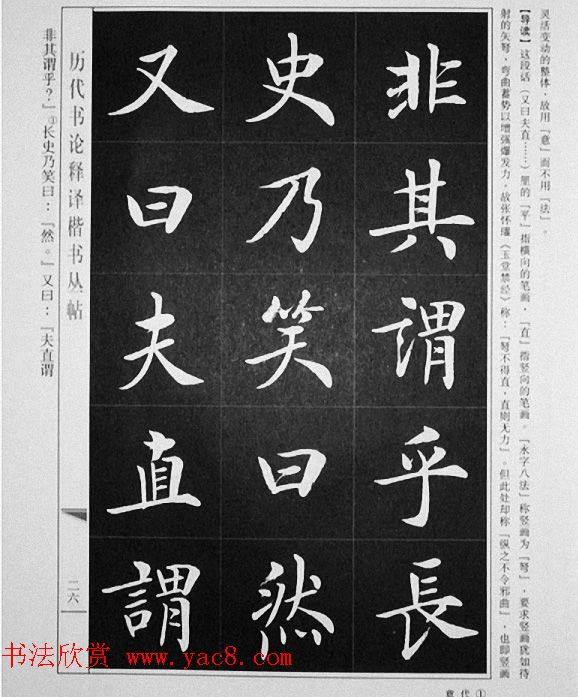 灵活变动的整体，故用『意』而不用『法』。
【导读】这段话（又曰夫直……）里的『平』指横向的笔画，『直』指竖向的笔画。『永字八法』称竖画为『弩』，要求竖画犹如待
射的矢弩，弯曲蓄势以增强爆发力，故张怀瓘《玉堂禁经》称：『弩不得直，直则无力』。但此处却称『纵之不令邪曲』，也即竖画
非其謂乎長
史乃笑曰然
又曰夫直謂
历代书论释译楷书丛帖
二六
非其谓乎？』①长史乃笑曰：『然。』又曰：『夫直谓
意 代 ①
书法欣赏 www.yac8.com